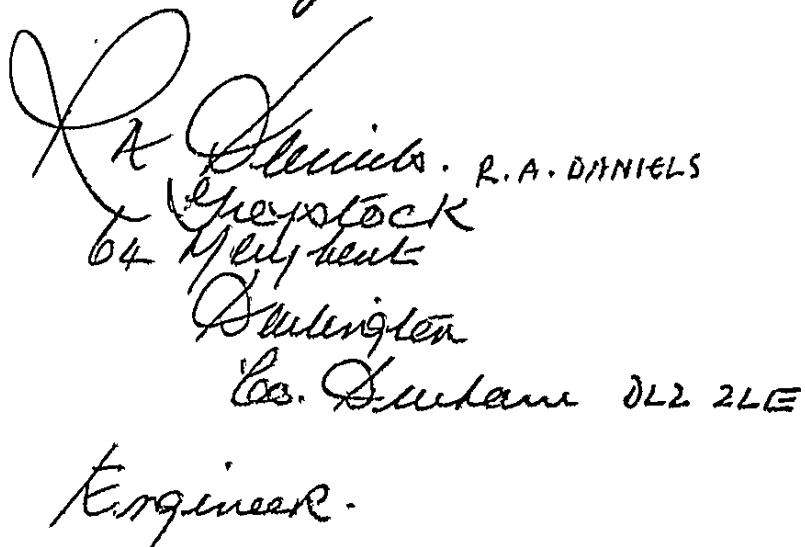 R A Daniels. R.A. DANIELS
Greystock
64 Merybent
Darlington
Co. Durham DL2 2LE
Engineer.